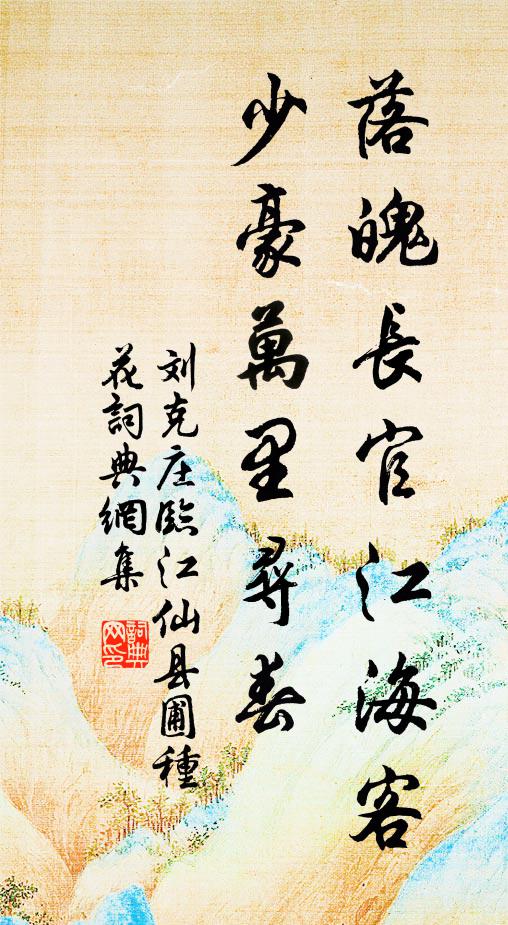 落魄長官江海客
少豪萬里尋春
刘克庄臨江仙县圃種
花詞典網集
詞典网印